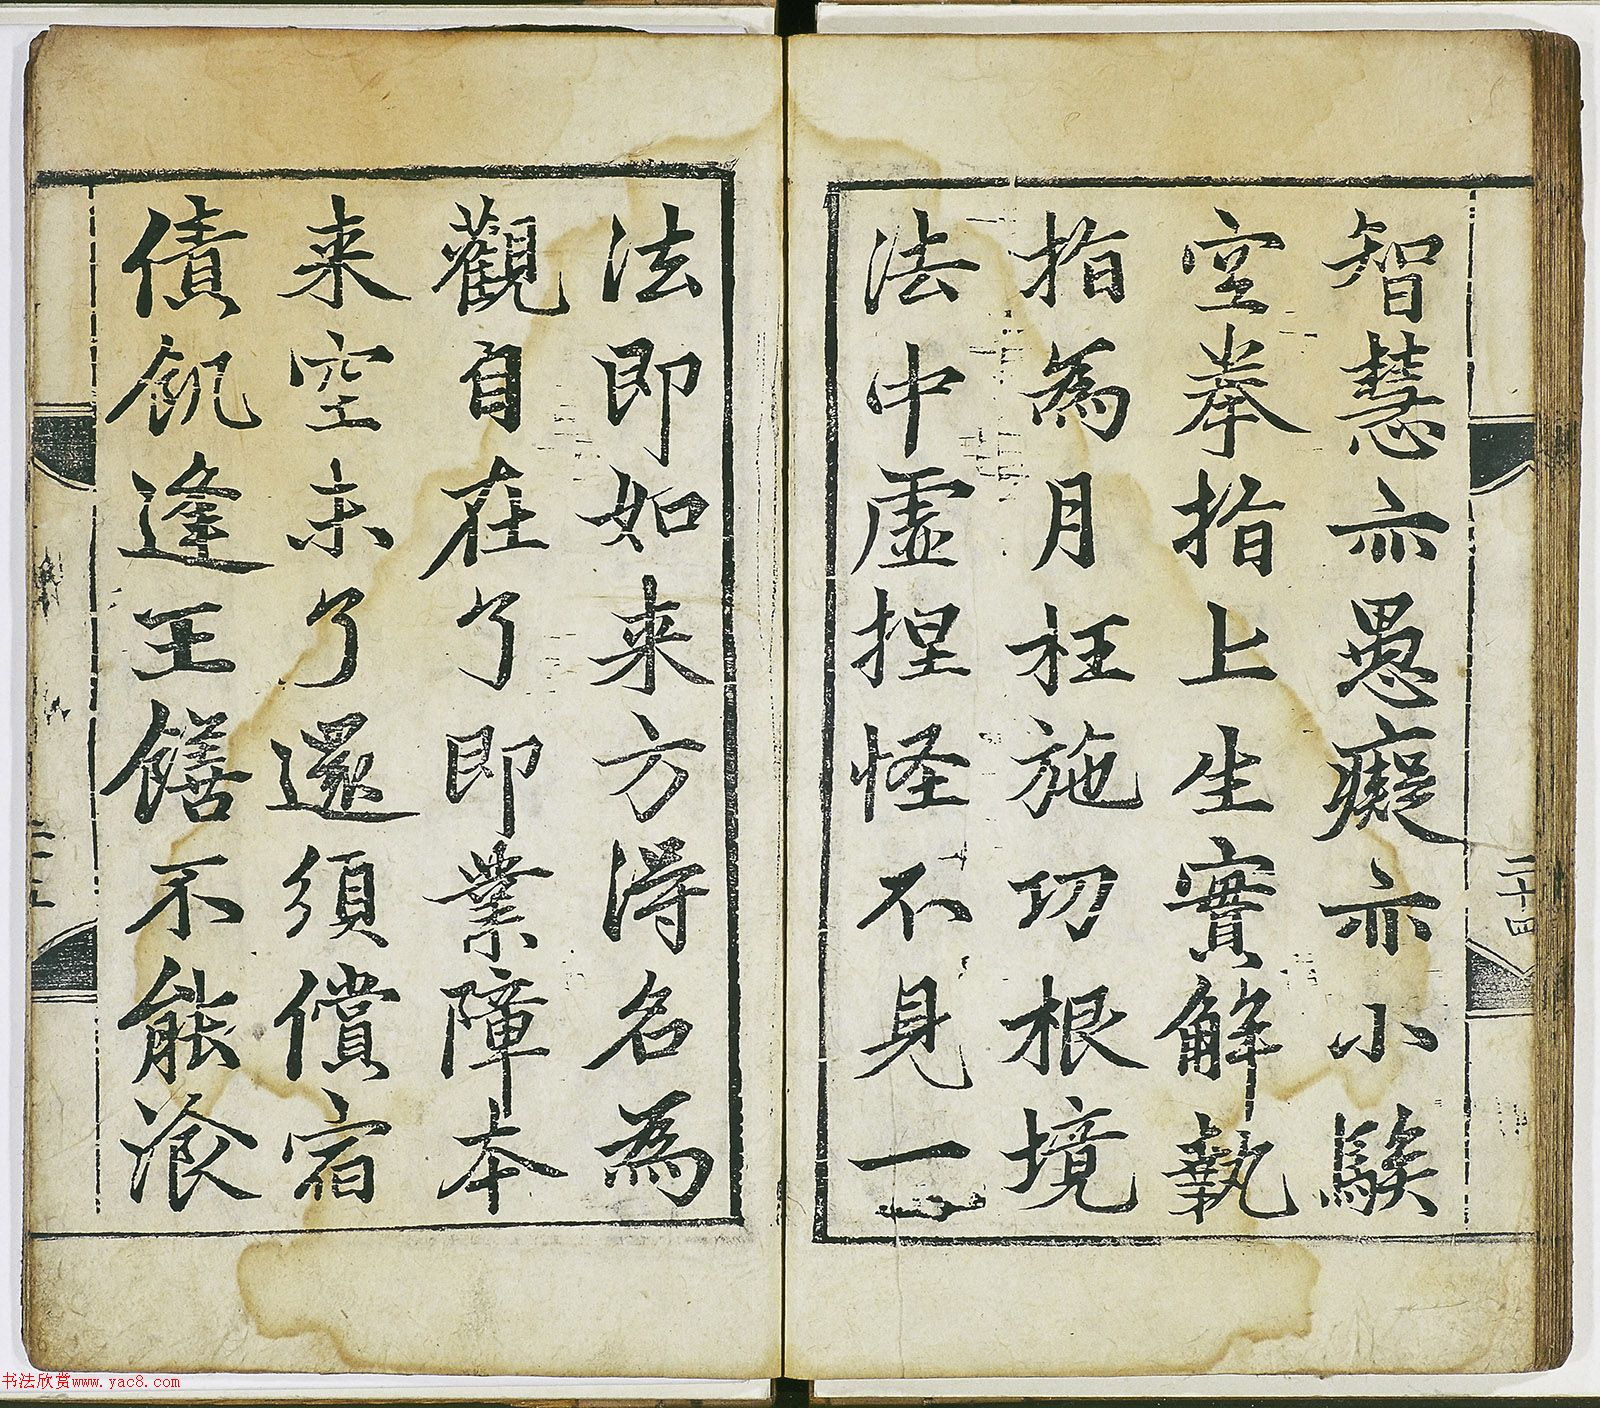 智慧亦愚癡亦小騃
空拳指上生實解執
指為月枉施功根境
法中虛捏怪不見一
法即如来方得名為
觀自在了即業障本
来空未了還須償宿
債飢逢王饍不能飡
二十四
书法欣赏www.yac8.com